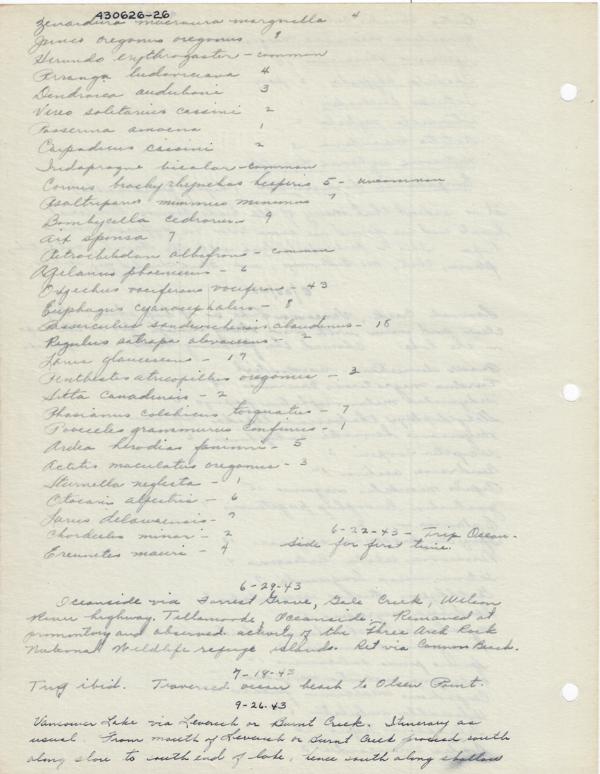 A30626-26
Zenaidura macroura marginella 4
Junco oreganus oreganus 8
Hirundo erythrogaster - common
Piranga ludoviciana 4
Dendroica auduboni 3
Vireo solitarius cassini 2
Passerina amoena 1
Carpodacus cassini 2
Iridoprocne bicolor - common
Corvus brachyrhynchos hesperis 5 - uncommon
Psaltriparus minimus minimus 7
Bombycilla cedrorum 9
Aix sponsa 7
Petrochelidon albifrons - common
Agelaius phoeniceus - 6
Oxyechus vociferus vociferus - 43
Euphagus cyanocephalus - 8
Passerculus sandwichensis alaudinus - 18
Regulus satrapa olivaceus - 2
Larus glaucescens - 17
Penthestes atricapillus oregonus - 3
Sitta canadensis - 2
Phasianus colchicus torquatus - 7
Pooecetes gramineus confinis - 1
Ardea herodias fannini - 5
Actitis maculatus oregonus - 3
Sturnella neglecta - 1
Otocoris alpestris - 6
Larus delawarensis - 2
Chordeiles minor - 2
Ereunetes mauri - 4
6-22-43 - Trip Ocean-
side for first time.
6-29-43
Oceanside via Forrest Grove, Gale Creek, Wilson
River highway, Tillamook, Oceanside. Remained at
promontory and observed activity of the Three Arch Rock
National Wildlife refuge islands. Ret via Cannon Beach.
7-18-43
Trip ibid. Traversed ocean beach to Olsen Point.
9-26-43
Vancouver Lake via Leverich or Burnt Creek. Itinerary as
usual. From mouth of Leverich or Burnt Creek proceed south
along shore to south end of lake, thence south along shallow